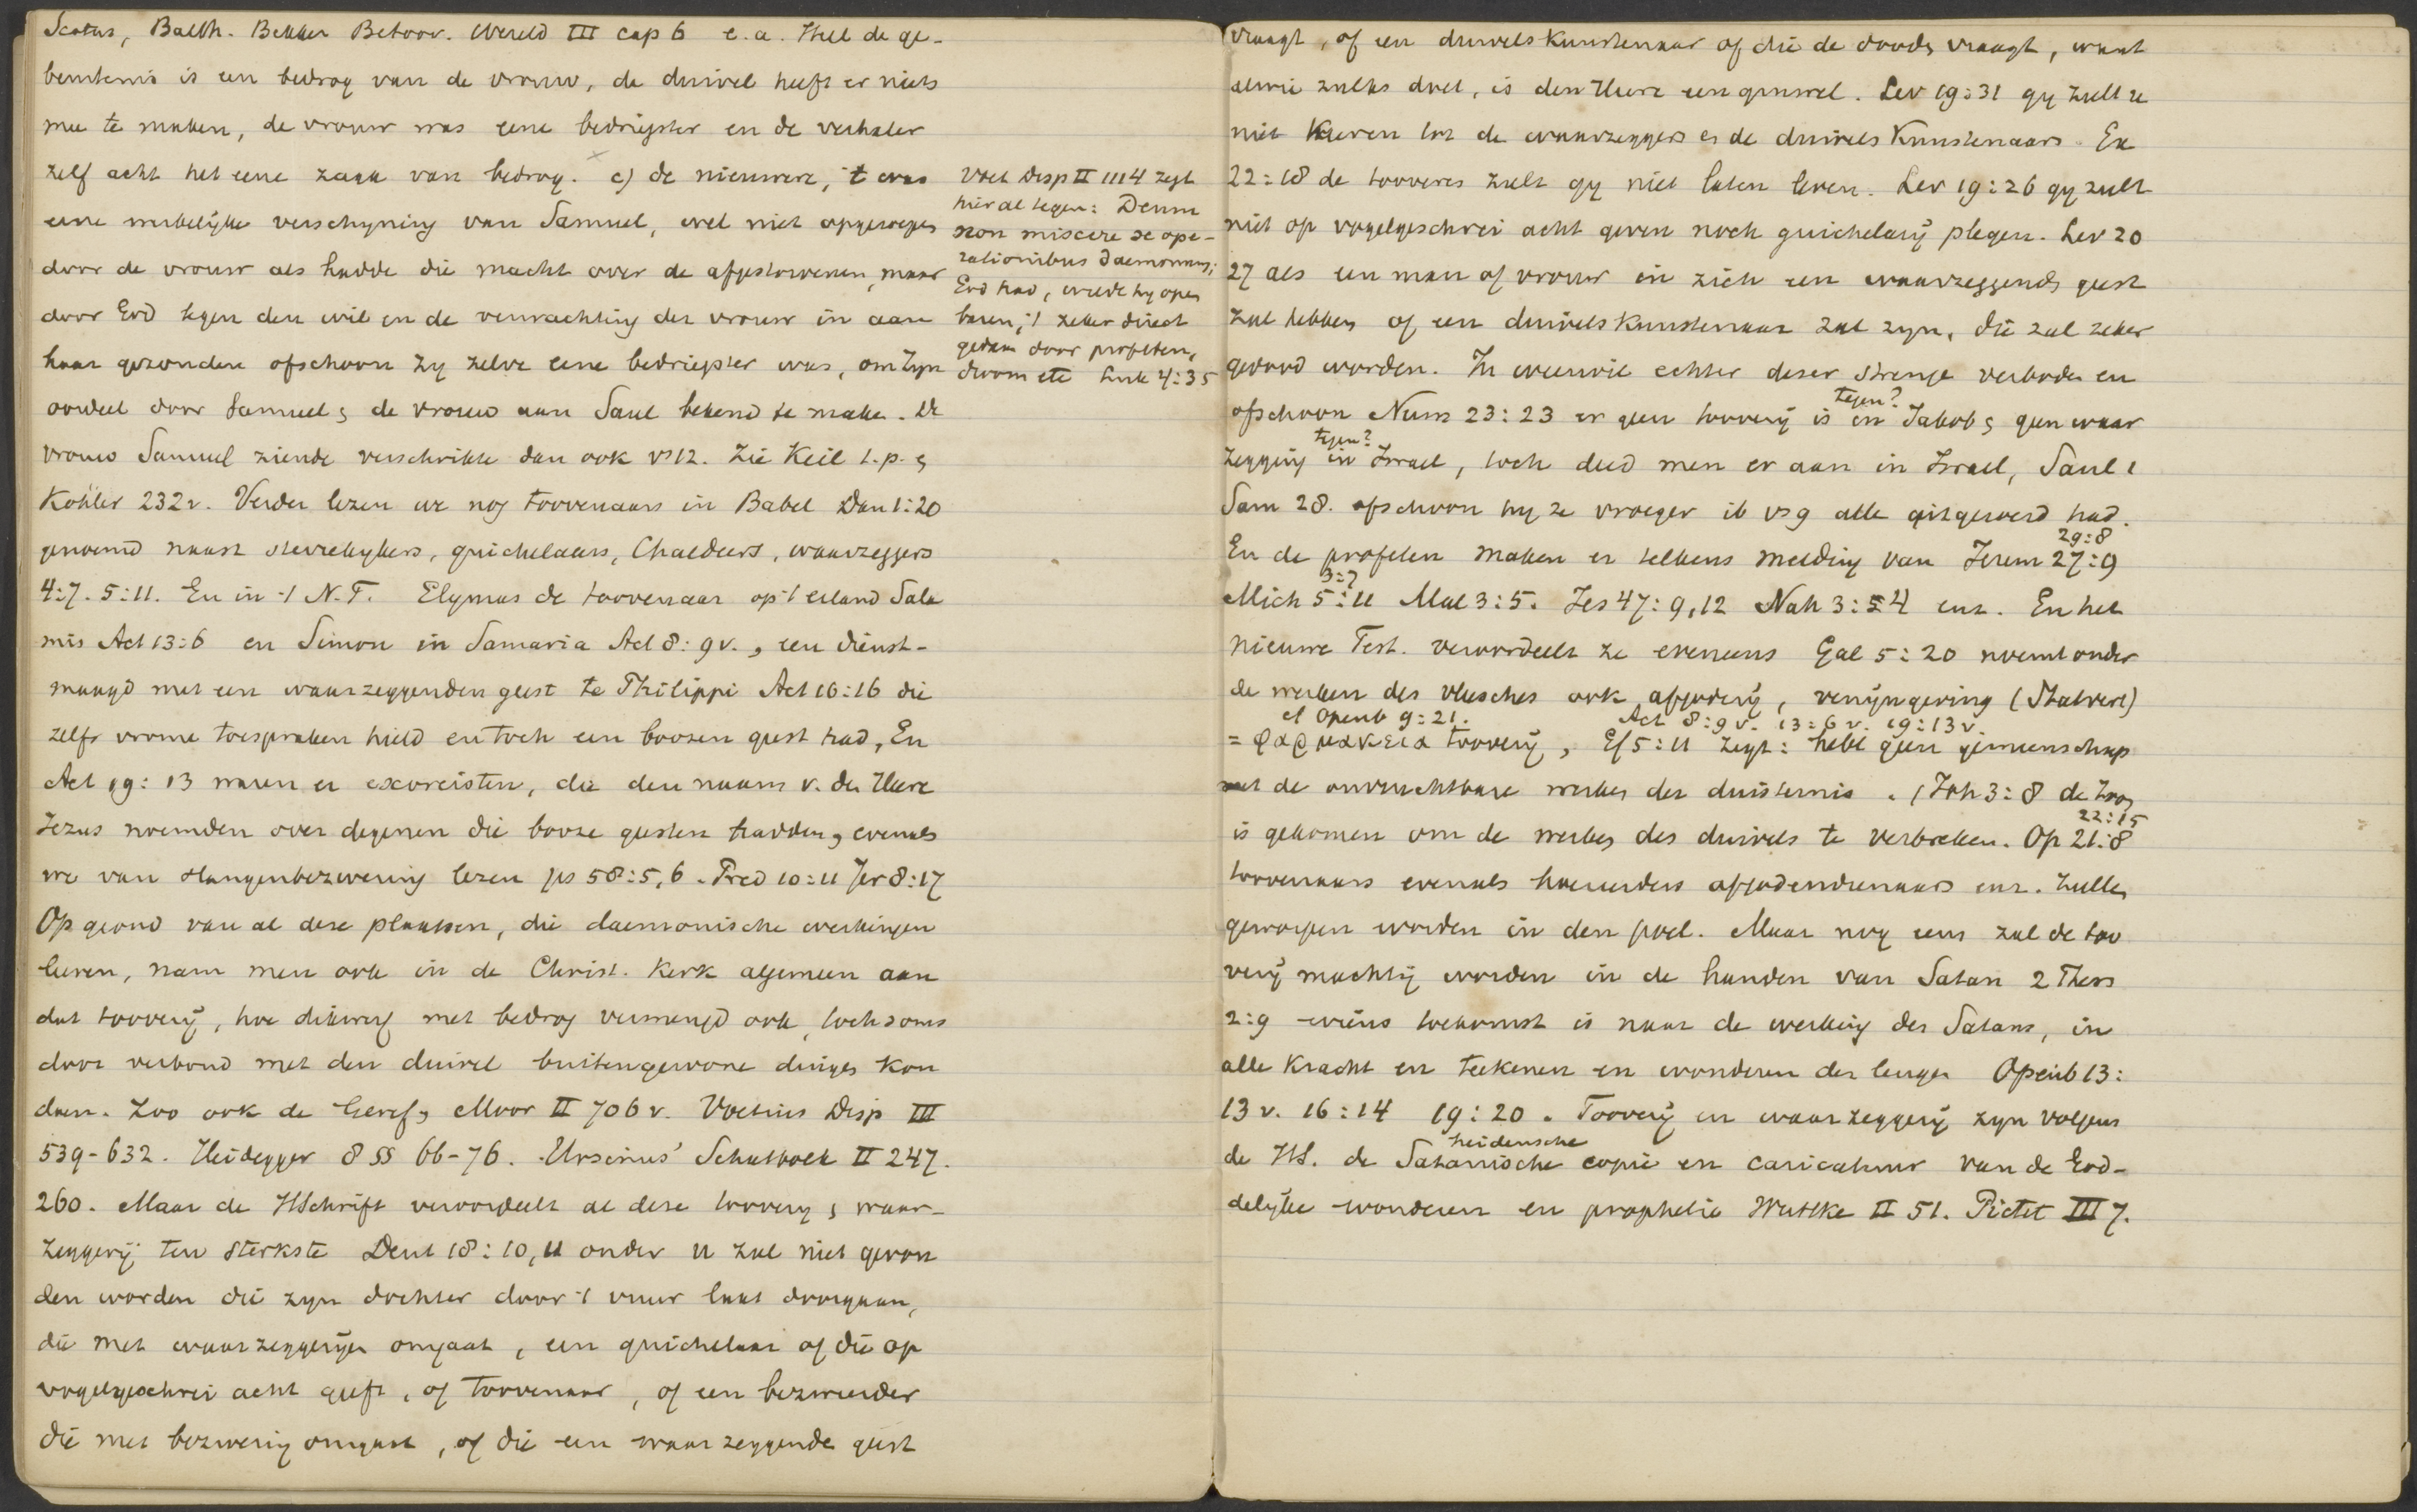 Scotus, Balth. Bekker Betoov. Wereld III cap 6 e.a. Heel de ge-
beurtenis is een bedrog van de vrouw, de duivel heeft er niets
mee te maken, de vrouw was eene bedriegster en de verhaler
zelf acht het eene zaak van bedrog. c) de nieuwere, 't was
eene werkelijke verschijning van Samuel, wel niet opgeroepen
door de vrouw als hadde die macht over de afgestorvenen, maar
door God tegen den wil en de verwachting der vrouw in aan
haar gezonden ofschoon zij zelve eene bedriegster was, om zijn
oordeel door Samuel & de vrouw aan Saul bekend te maken. De
vrouw Samuel ziende verschrikte dan ook vs 12. Zie Keil t.p. &
Köhler 232v. Verder lezen we nog toovenaars in Babel Dan 1:20
genoemd naast sterrekijkers, guichelaars, Chaldeërs, waarzeggers
4:7. 5:11. En in 't N.T. Elymas de toovenaar op 't eiland Sala
mis Act 13:6 en Simon in Samaria Act 8:9v., een dienst-
maagd met een waarzeggenden geest te Philippi Act 16:16 die
zelfs vrome toespraken hield en toch een boozen geest had, En
Act 19:13 waren er exorcisten, die den naam v. den Heere
Jezus noemden over degenen die booze geesten hadden, evenals
we van slangenbezwering lezen ps 58:5,6. Pred 10:11 Jer 8:17
Op grond van al deze plaatsen, die daemonische werkingen
leeren, nam men ook in de Christ. Kerk algemeen aan
dat tooverij, hoe dikwerf met bedrog vermengd ook, toch soms
door verbond met den duivel buitengewone dingen kon
doen. Zoo ook de Geref, Moor II 706v. Voetius Disp III
539-632. Heidegger 8 §§ 66-76. Ursinus' Schatboek II 247.
260. Maar de HSchrift veroordeelt al deze tooverij & waar-
zeggerij ten sterkste Deut 18:10,11 onder u zal niet gevon
den worden die zijn dochter door 't vuur laat doorgaan,
die met waarzeggerijen omgaat, een guichelaar of die op
vogelgeschrei acht geeft, of toovenaar, of een bezweerder
die met bezwering omgaat, of die een waarzeggende geest
Voet Disp II 1114 zegt
hier al tegen: Deum
non miscere se ope-
rationibus daemonum;
God had, wilde hij open
baren, 't zeker direct
gedaan door profeten,
droom etc Luk 4:35
vraagt, of een duivelskunstenaar of die de dooden vraagt, want
alwie zulks doet, is den Heere een gruwel. Lev 19:31 gij zult u
niet keeren tot de waarzeggers en de duivelskunstenaars. Ex
22:18 de tooveres zult gij niet laten leven. Lev 19:26 gij zult
niet op vogelgeschrei acht geven noch guichelarij plegen. Lev 20
27 als een man of vrouw in zich een waarzeggende geest
zal hebben of een duivelskunstenaar zal zijn, die zal zeker
gedood worden. In weerwil echter dezer strenge verboden en
tegen?
ofschoon Num 23:23 er geen tooverij is in Jakob & geen waar
tegen?
zegging in Israel, toch deed men er aan in Israel, Saul 1
Sam 28. ofschoon hij ze vroeger ib vs 9 alle uitgeroeid had.
29:8
En de profeten maken er telkens melding van Jerem 27:9
3:7
Mich 5:11 Mal 3:5. Jes 47:9,12 Nah 3:4 enz. En het
nieuwe Test. veroordeelt ze eveneens Gal 5:20 noemt onder
de werken des vleesches ook afgoderij, venijngeving (Statvert)
cf Openb 9:21. Act 8:9v. 13:6v. 19:13v.
= φαρμακεια tooverij, Ef 5:11 zegt: hebt geen gemeenschap
met de onvruchtbare werken der duisternis. 1 Joh 3:8 de Zoon
22:15
is gekomen om de werken des duivels te verbreken. Op 21:8
toovenaars evenals hoereerders afgodendienaars enz. zullen
geworpen worden in den poel. Maar nog eens zal de too
verij machtig worden in de handen van Satan 2 Thess
2:9 wiens toekomst is naar de werking des Satans, in
alle kracht en teekenen en wonderen der leugen Openb 13:
13v. 16:14 19:20. Tooverij en waarzeggerij zijn volgens
heidensche
de HS. de Satanische copie en caricatuur van de God-
delijke wonderen en prophetie Wuttke II 51. Pictet III 7.